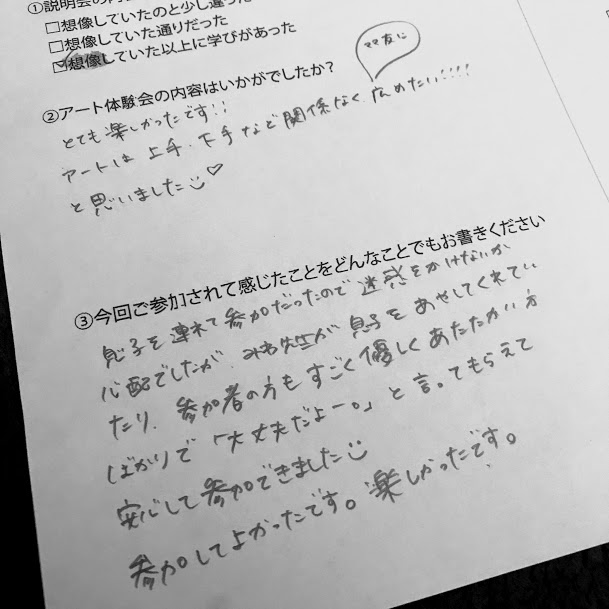 ①説明会の内
□想像していたのと少し違った
□想像していた通りだった
☑想像していた以上に学びがあった
②アート体験会の内容はいかがでしたか？
ママ友に
とても楽しかったです!!
アートは上手、下手など関係なく広めたい!!!!
と思いました
③今回ご参加されて感じたことをどんなことでもお書きください
息子を連れて参加だったので迷惑をかけないか
心配でしたが、みわ先生が息子をあやしてくれてい
たり、参加者の方もすごく優しくあたたかい方
ばかりで「大丈夫だよー。」と言ってもらえて
安心して参加できました
参加してよかったです。楽しかったです。